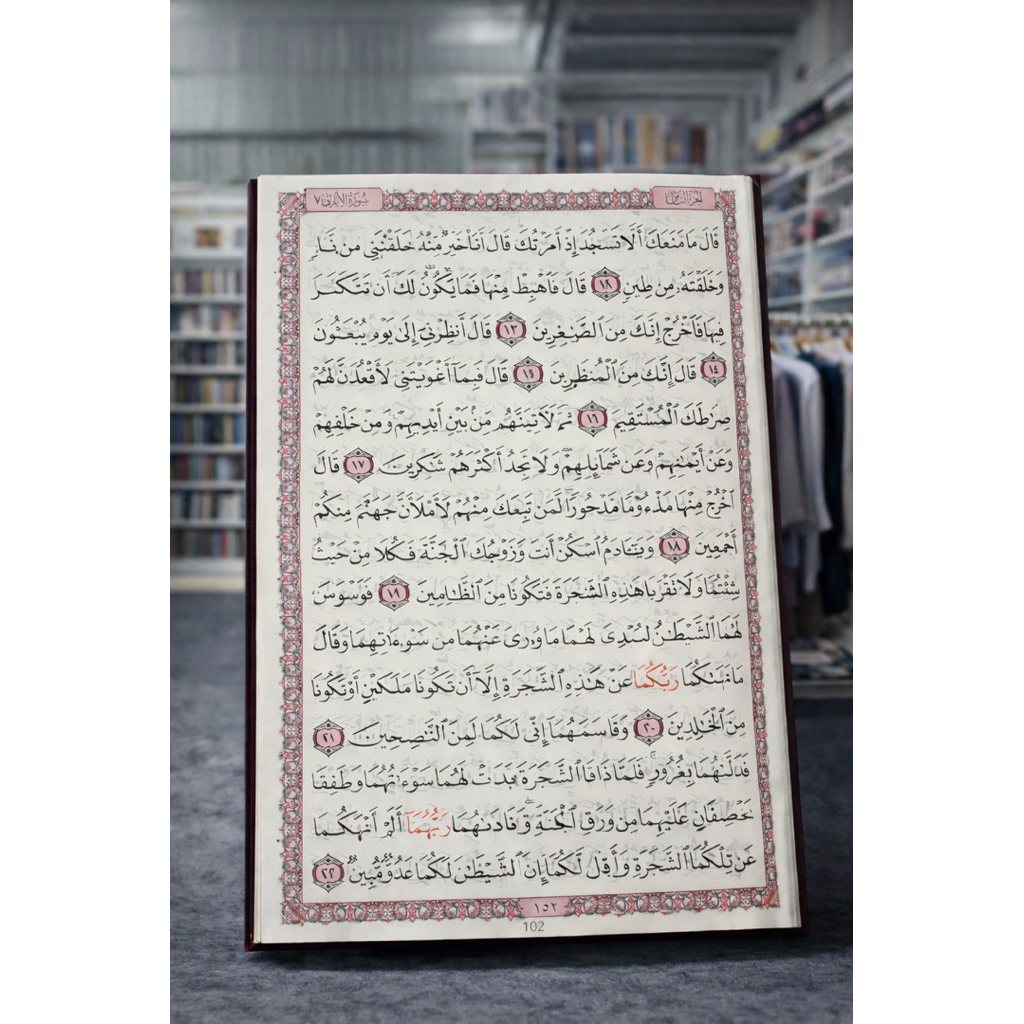 الجزء الثامن
سورة الأعراف ٧
قَالَ مَا مَنَعَكَ أَلَّا تَسْجُدَ إِذْ أَمَرْتُكَ قَالَ أَنَا خَيْرٌ مِّنْهُ خَلَقْتَنِي مِن نَّارٍ
وَخَلَقْتَهُۥ مِن طِينٍ ١٨ قَالَ فَٱهْبِطْ مِنْهَا فَمَا يَكُونُ لَكَ أَن تَتَكَبَّرَ
فِيهَا فَٱخْرُجْ إِنَّكَ مِنَ ٱلصَّٰغِرِينَ ١٣ قَالَ أَنظِرْنِىٓ إِلَىٰ يَوْمِ يُبْعَثُونَ
١٤ قَالَ إِنَّكَ مِنَ ٱلْمُنظَرِينَ ١٥ قَالَ فَبِمَآ أَغْوَيْتَنِى لَأَقْعُدَنَّ لَهُمْ
صِرَٰطَكَ ٱلْمُسْتَقِيمَ ١٦ ثُمَّ لَءَاتِيَنَّهُم مِّنۢ بَيْنِ أَيْدِيهِمْ وَمِنْ خَلْفِهِمْ
وَعَنْ أَيْمَٰنِهِمْ وَعَن شَمَآئِلِهِمْ وَلَا تَجِدُ أَكْثَرَهُمْ شَٰكِرِينَ ١٧ قَالَ
ٱخْرُجْ مِنْهَا مَذْءُومًا مَّدْحُورًا لَّمَن تَبِعَكَ مِنْهُمْ لَأَمْلَأَنَّ جَهَنَّمَ مِنكُمْ
أَجْمَعِينَ ١٨ وَيَٰٓـَٔادَمُ ٱسْكُنْ أَنتَ وَزَوْجُكَ ٱلْجَنَّةَ فَكُلَا مِنْ حَيْثُ
شِئْتُمَا وَلَا تَقْرَبَا هَٰذِهِ ٱلشَّجَرَةَ فَتَكُونَا مِنَ ٱلظَّٰلِمِينَ ١٩ فَوَسْوَسَ
لَهُمَا ٱلشَّيْطَٰنُ لِيُبْدِىَ لَهُمَا مَا وُۥرِىَ عَنْهُمَا مِن سَوْءَٰتِهِمَا وَقَالَ
مَا نَهَىٰكُمَا رَبُّكُمَا عَنْ هَٰذِهِ ٱلشَّجَرَةِ إِلَّآ أَن تَكُونَا مَلَكَيْنِ أَوْ تَكُونَا
مِنَ ٱلْخَٰلِدِينَ ٢٠ وَقَاسَمَهُمَآ إِنِّى لَكُمَا لَمِنَ ٱلنَّٰصِحِينَ ٢١
فَدَلَّىٰهُمَا بِغُرُورٍ فَلَمَّا ذَاقَا ٱلشَّجَرَةَ بَدَتْ لَهُمَا سَوْءَٰتُهُمَا وَطَفِقَا
يَخْصِفَانِ عَلَيْهِمَا مِن وَرَقِ ٱلْجَنَّةِ وَنَادَىٰهُمَا رَبُّهُمَآ أَلَمْ أَنْهَكُمَا
عَن تِلْكُمَا ٱلشَّجَرَةِ وَأَقُل لَّكُمَآ إِنَّ ٱلشَّيْطَٰنَ لَكُمَا عَدُوٌّ مُّبِينٌ ٢٢
١٥٢
102